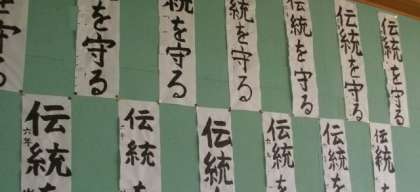 統を守る
統を守る
統を守る
伝統を守る
伝統を守る
伝統を守る
伝統を守る
伝統
六年
伝統
伝統
伝統
伝統
伝統